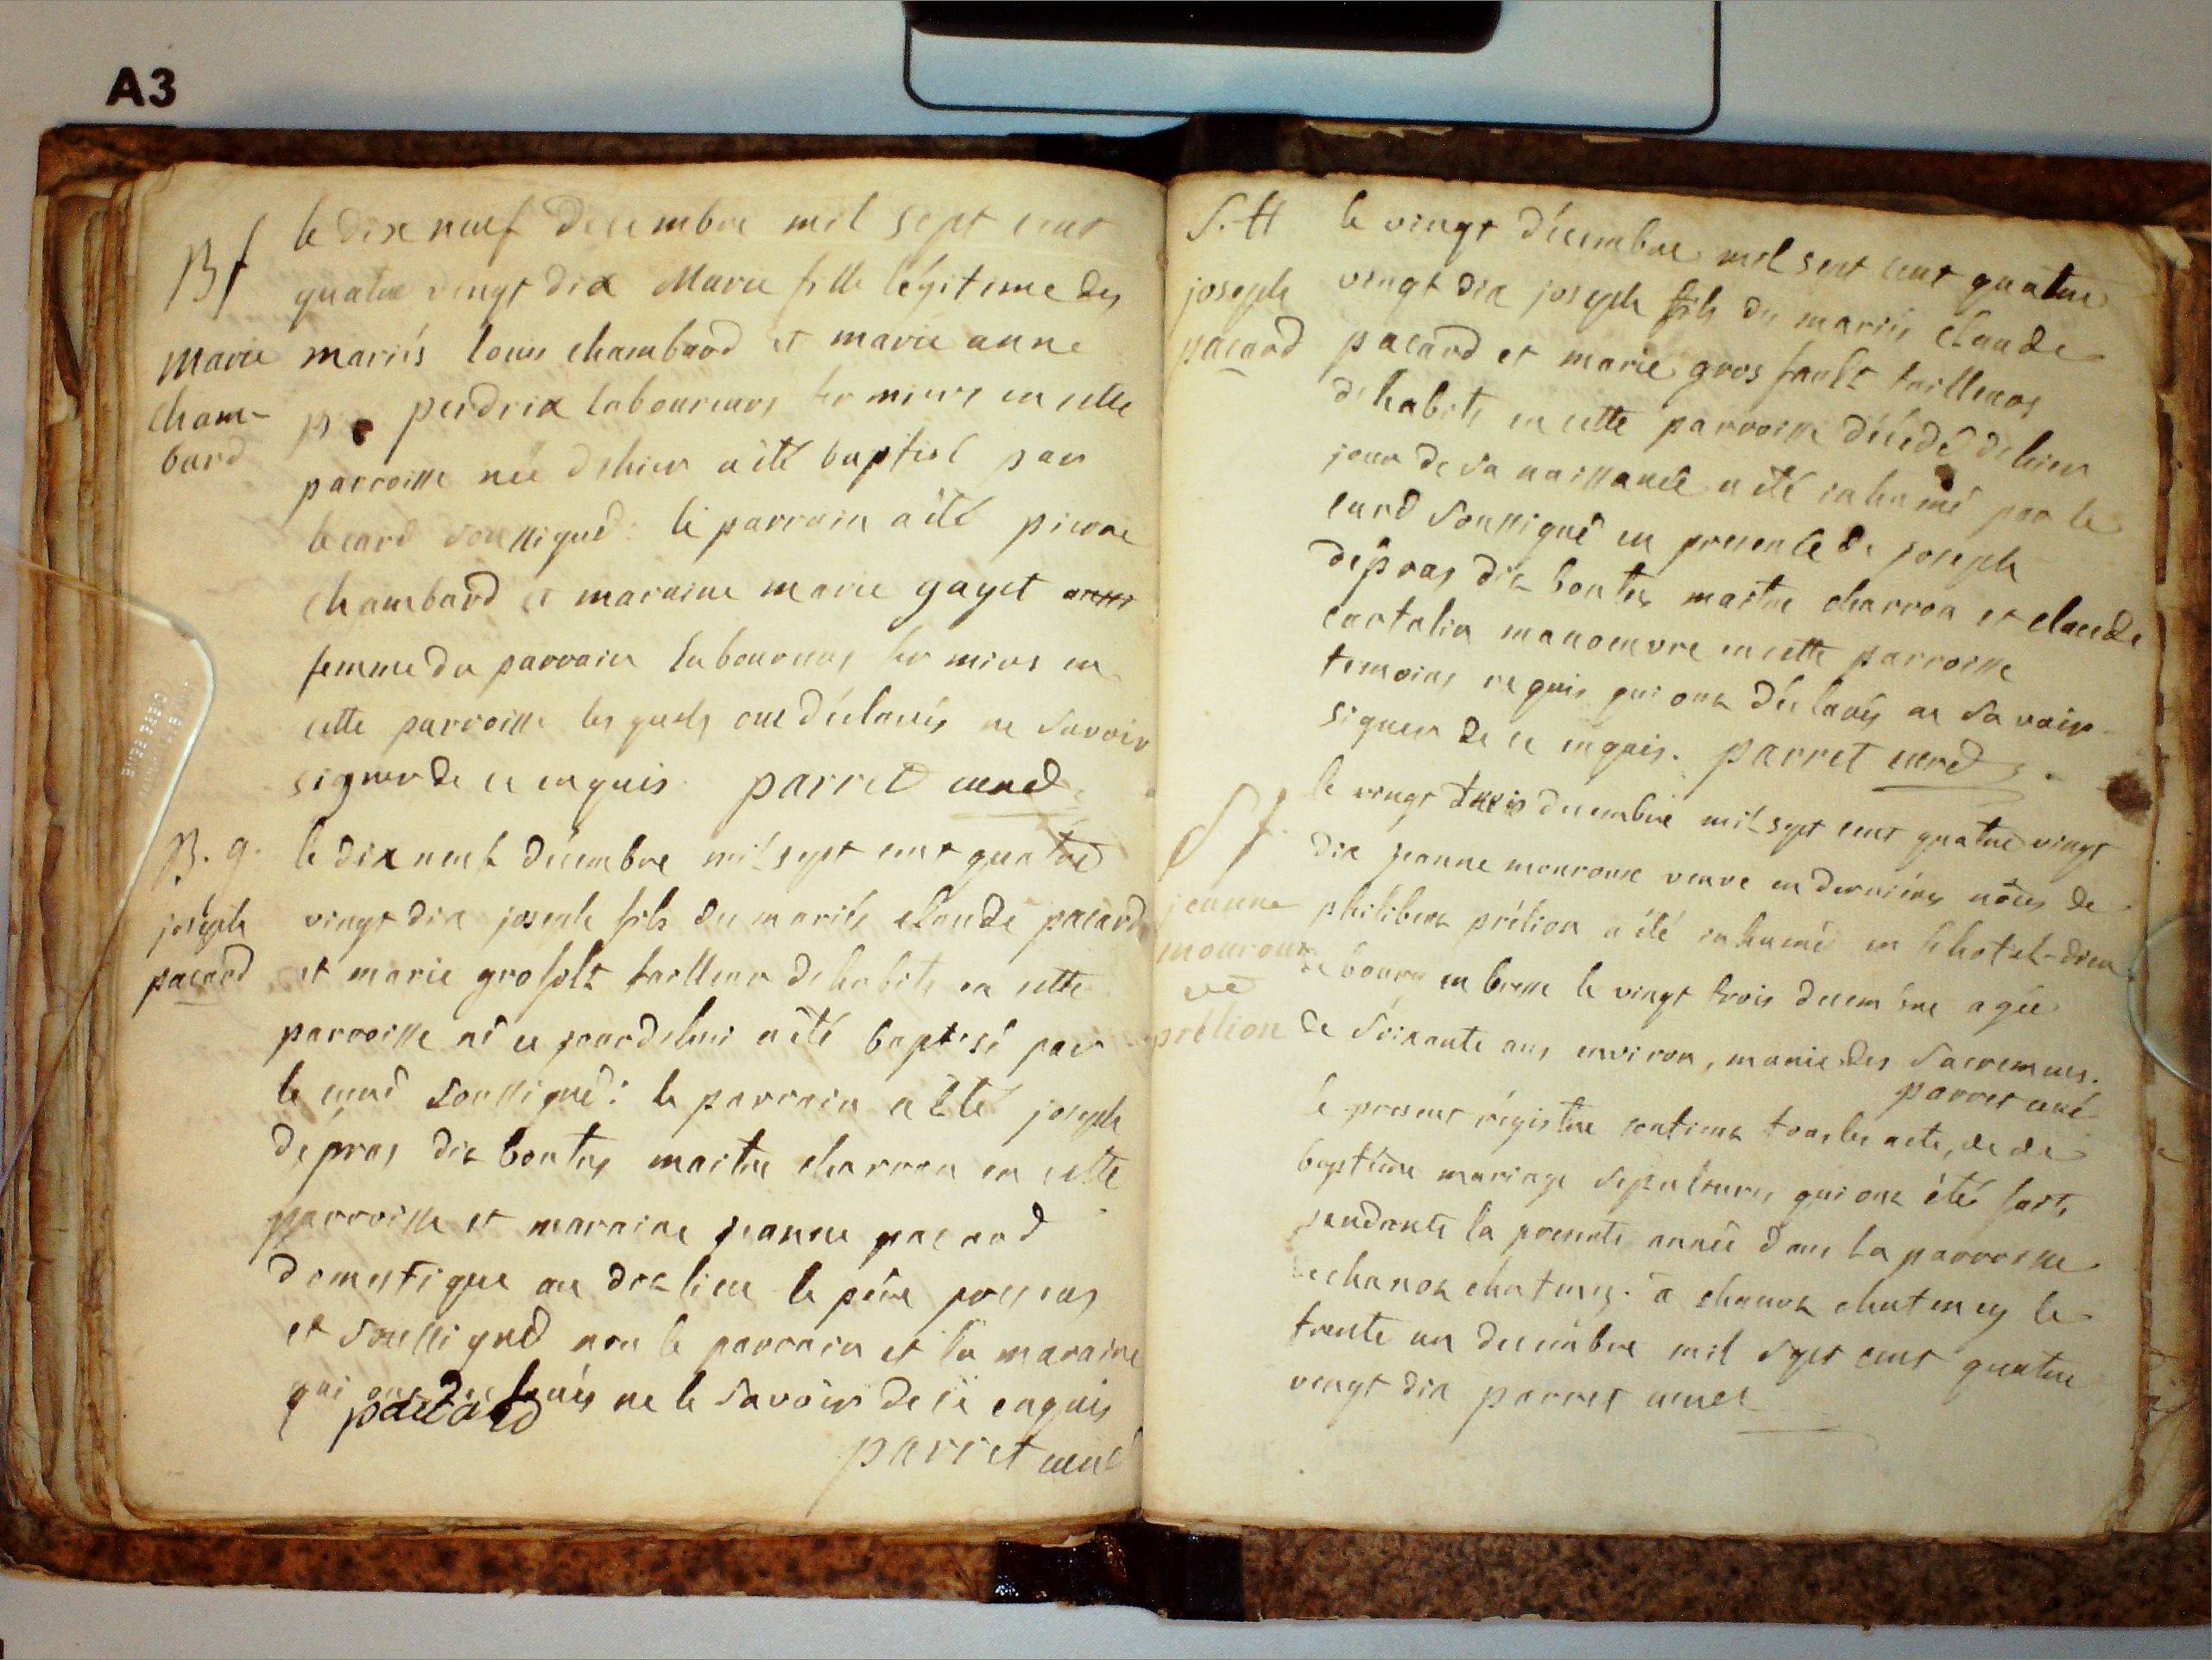 A3
Bf
Marie
cham-
bard
le dix neuf decembre mil sept cent
quatre vingt dix Marie fille légitime des
mariés louis chambard et marie anne
perdrix laboureurs fermiers en cette
parroisse née d'hier a été baptisé par
le curé soussigné: le parrain a été pierre
chambard et maraine marie gayet
femme du parrain laboureurs fermiers en
cette parroisse les quels ont déclarés ne savoir
signer de ce enquis parret curé
B. g.
joseph
pacard
le dix neuf décembre mil sept cent quatre
vingt dix joseph fils du mariés claude pacard
et marie grosfolt tailleur dehabits en cette
parroisse né ce jourdehui a été baptisé par
le curé soussigné: le parrain a été joseph
dépras dit bontes maitre charron en cette
parroisse et maraine jeanne pacard
domestique au dit lieu le père present
et soussigné non le parrain et la maraine
qui ont declarés ne le savoir de ce enquis
pacard
parret curé
S. H
joseph
pacard
le vingt décembre mil sept cent quatre
vingt dix joseph fils des mariés claude
pacard et marie gros tailleurs
dehabits en cette parroisse décédé dehier
jour de sa naissance a été inhumé par le
curé soussigné en presence de joseph
dépras dit bontes maitre charron et claude
cortalin manoeuvre en cette parroisse
temoins requis qui ont déclarés ne savoir
signer de ce enquis. parret curé
S f.
jeanne
mouroux
ve
prélion
le vingt trois decembre mil sept cent quatre vingt
dix jeanne mouroux veuve en dernières nôces de
philibert prélion a été inhumé en l'hotel-dieu
de bourg en bresse le vingt trois decembre agée
de soixante ans environ, munie des sacremens.
parret curé
le present régistre contient tous les acte, de de
baptême mariage sepultures qui ont étés faits
pendante la presente année dans la parroisse
de chanoz chatenay. a chanoz chatenay le
trente un decembre mil sept cent quatre
vingt dix parret curé